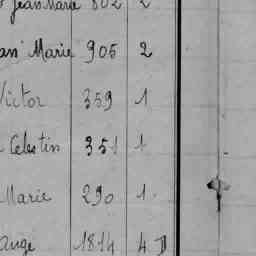 Jean Marie 802 2
Marie 905 2
Victor 359 1
Célestin 351 1
Marie 290 1
Ange 1814 4 D